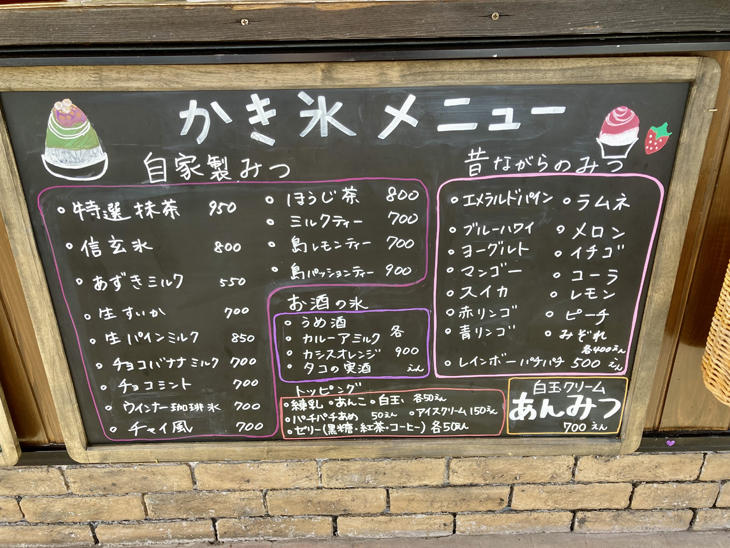 かき氷 メニュー
自家製みつ
・特選抹茶 950
・信玄氷 800
・あずきミルク 550
・生すいか 700
・生パインミルク 850
・チョコバナナミルク 700
・チョコミント 700
・ウインナー珈琲氷 700
・チャイ風 700
・ほうじ茶 800
・ミルクティー 700
・島レモンティー 700
・島パッションティー 900
お酒の氷
・うめ酒
・カルーアミルク
・カシスオレンジ
・タコの実酒
各
900
えん
トッピング
・練乳 ・あんこ ・白玉 各50えん
・パチパチあめ 50えん ・アイスクリーム150えん
・ゼリー(黒糖・紅茶・コーヒー) 各50えん
昔ながらのみつ
・エメラルドパイン ・ラムネ
・ブルーハワイ ・メロン
・ヨーグルト ・イチゴ
・マンゴー ・コーラ
・スイカ ・レモン
・赤リンゴ ・ピーチ
・青リンゴ ・みぞれ
各400えん
・レインボーパチパチ 500えん
白玉クリーム
あんみつ
700えん